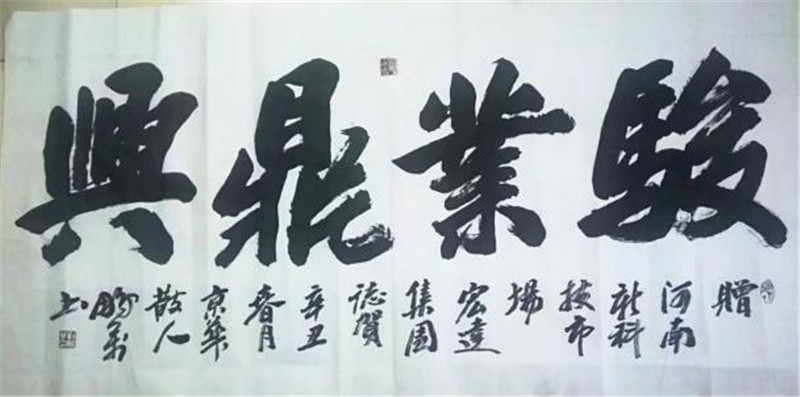 駿業鼎興
贈
河南
新科
技市
場
宏達
集團
誌賀
辛丑
春月
京華
散人
鵬舉
书